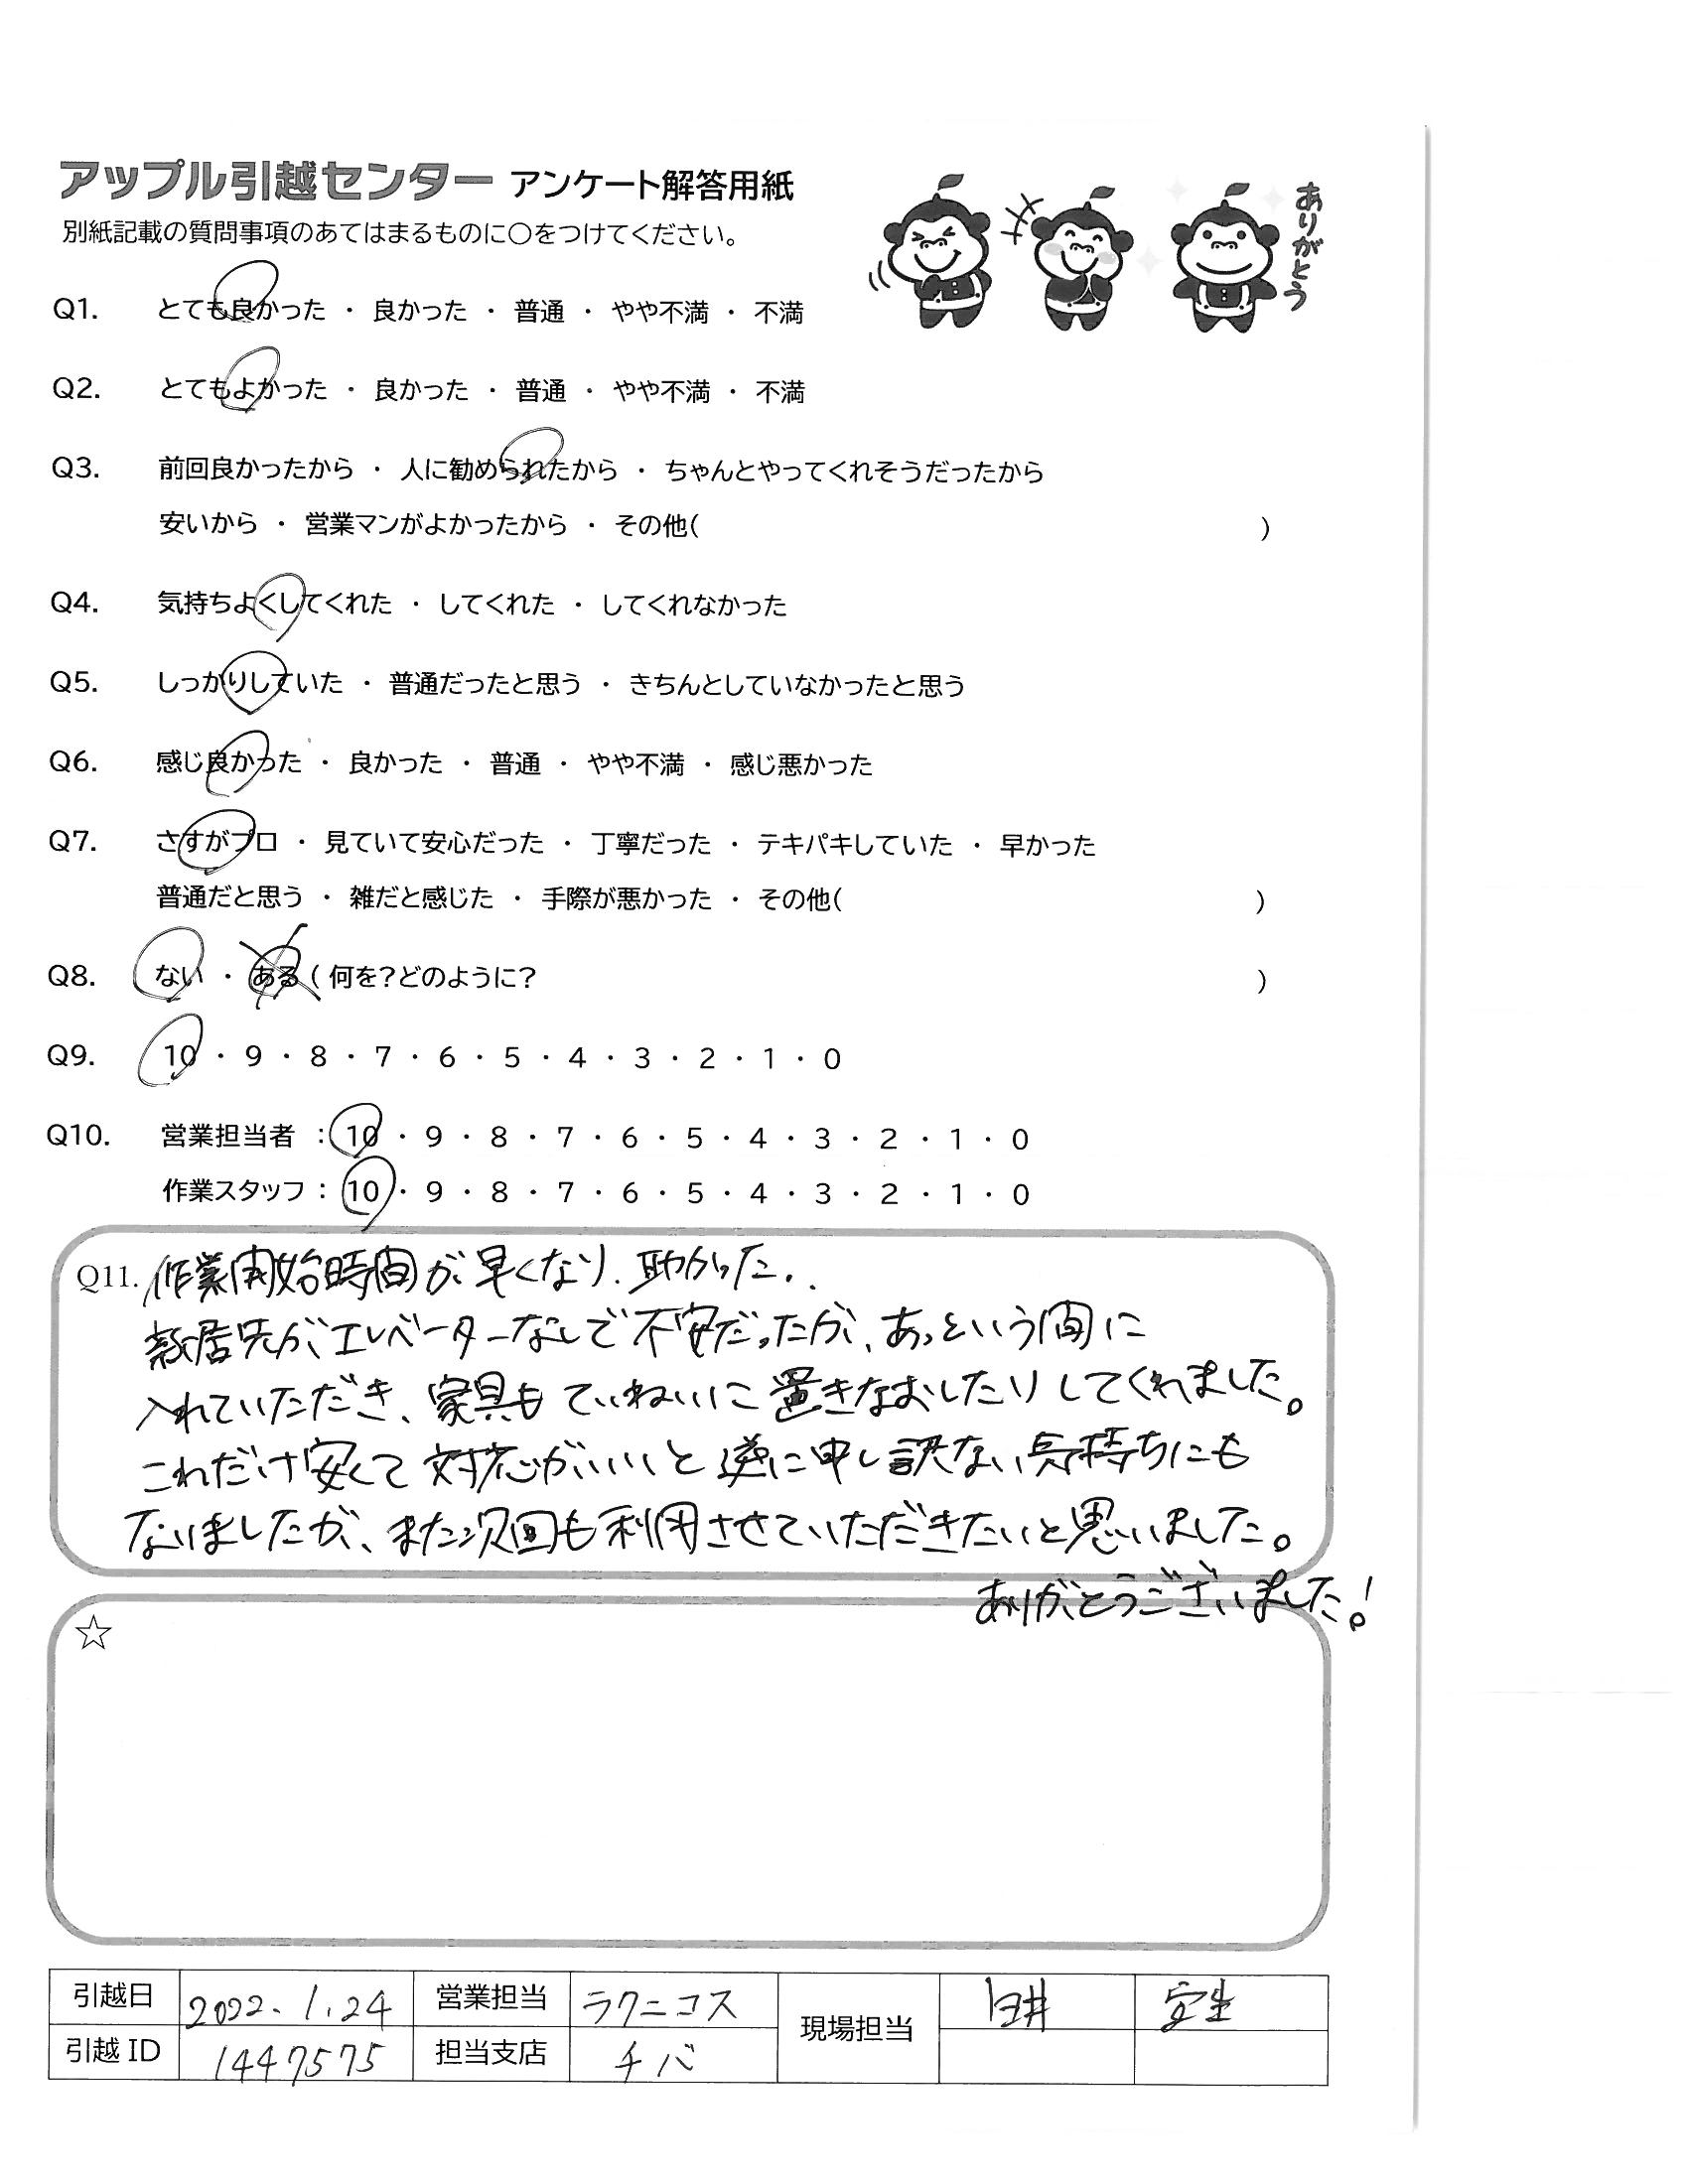 アップル引越センター アンケート解答用紙
別紙記載の質問事項のあてはまるものに○をつけてください。
ありがとう
Q1. とても良かった ・ 良かった ・ 普通 ・ やや不満 ・ 不満
Q2. とてもよかった ・ 良かった ・ 普通 ・ やや不満 ・ 不満
Q3. 前回良かったから ・ 人に勧められたから ・ ちゃんとやってくれそうだったから
安いから ・ 営業マンがよかったから ・ その他( )
Q4. 気持ちよくしてくれた ・ してくれた ・ してくれなかった
Q5. しっかりしていた ・ 普通だったと思う ・ きちんとしていなかったと思う
Q6. 感じ良かった ・ 良かった ・ 普通 ・ やや不満 ・ 感じ悪かった
Q7. さすがプロ ・ 見ていて安心だった ・ 丁寧だった ・ テキパキしていた ・ 早かった
普通だと思う ・ 雑だと感じた ・ 手際が悪かった ・ その他( )
Q8. ない ・ ある ( 何を?どのように? )
Q9. 10 ・ 9 ・ 8 ・ 7 ・ 6 ・ 5 ・ 4 ・ 3 ・ 2 ・ 1 ・ 0
Q10. 営業担当者 : 10 ・ 9 ・ 8 ・ 7 ・ 6 ・ 5 ・ 4 ・ 3 ・ 2 ・ 1 ・ 0
作業スタッフ : 10 ・ 9 ・ 8 ・ 7 ・ 6 ・ 5 ・ 4 ・ 3 ・ 2 ・ 1 ・ 0
Q11. 作業開始時間が早くなり、助かった。
新居先がエレベーターなしで不安だったが、あっという間に
入れていただき、家具もていねいに置きなおしたりしてくれました。
これだけ安くて対応がいいと逆に申し訳ない気持ちにも
なりましたが、また次回も利用させていただきたいと思いました。
ありがとうございました!
☆
引越日 2022.1.24 営業担当 ラクニコス 現場担当 臼井 安生
引越ID 1447575 担当支店 チバ